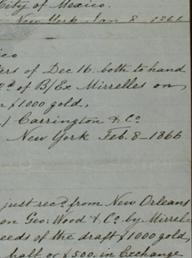 City of Mexico.
New York Jan 8 1866
ico
ers of Dec 16. both to hand
2d of B/Ex Mirrelles on
£1000 gold,
Carrington & Co
New York Feb. 8 - 1866
just recd from New Orleans
on Geo: Wood & Co. by Mirrel
eeds of the draft £1000 gold,
half or £500. in Exchange